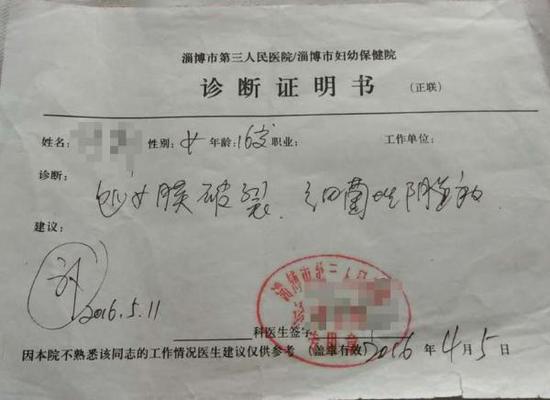 淄博市第三人民医院/淄博市妇幼保健院
诊断证明书 (正联)
姓名: 性别: 女 年龄: 16岁 职业: 工作单位:
诊断:
处女膜破裂、细菌性阴道
建议:
2016.5.11
淄博市第三人
专用章
科医生签字
因本院不熟悉该同志的工作情况医生建议仅供参考 (盖章有效) 2016年4月5日